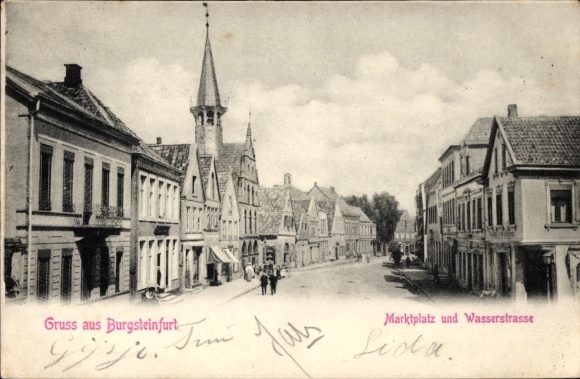 Gruss aus Burgsteinfurt
Marktplatz und Wasserstrasse
Lida.